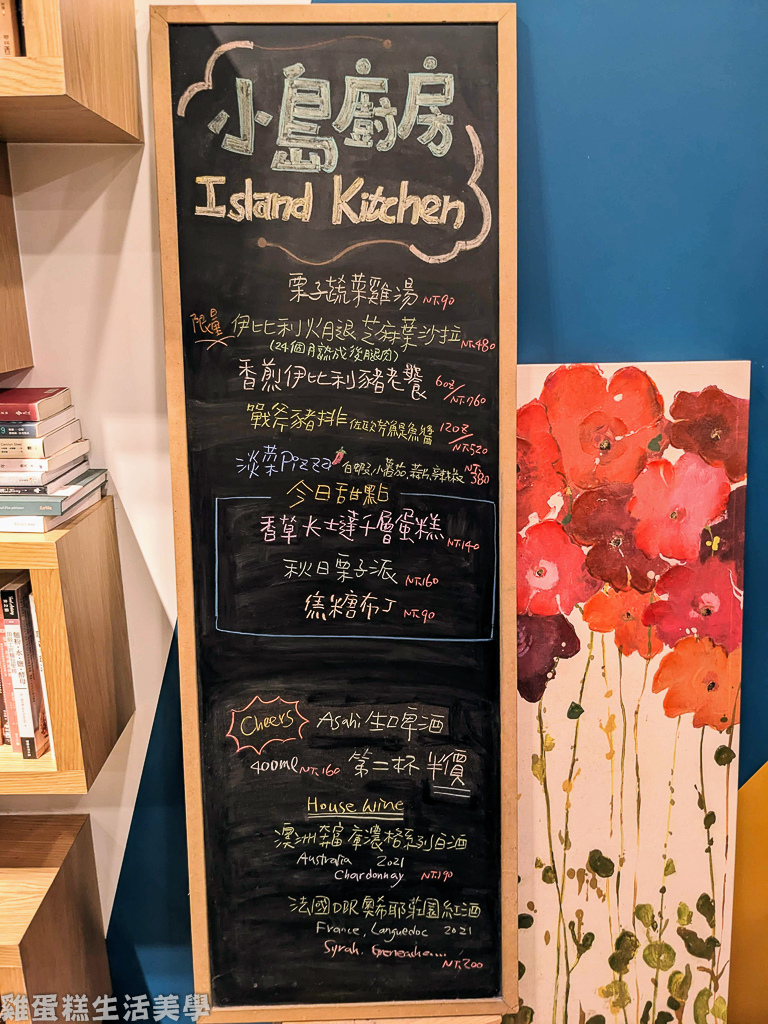 小島廚房
Island Kitchen
栗子蔬菜雞湯 NT.90
限量 伊比利火腿芝麻葉沙拉 NT.480
(24個月熟成後腿肉)
香煎伊比利豬老饕 6oz/NT.760
戰斧豬排 佐歐芹鯷魚醬 12oz/NT.520
淡菜Pizza 白蝦,小蕃茄,蒜片,辣椒 NT.380
今日甜點
香草卡士達千層蛋糕 NT.140
秋日栗子派 NT.160
焦糖布丁 NT.90
Cheers Asahi 生啤酒
400ml NT.160 第二杯 半價
House Wine
澳洲奔富 濃格系列白酒
Australia 2021
Chardonnay NT.190
法國DBR奧希耶莊園紅酒
France, Languedoc 2021
Syrah, Grenache...
NT.200
雞蛋糕生活美學